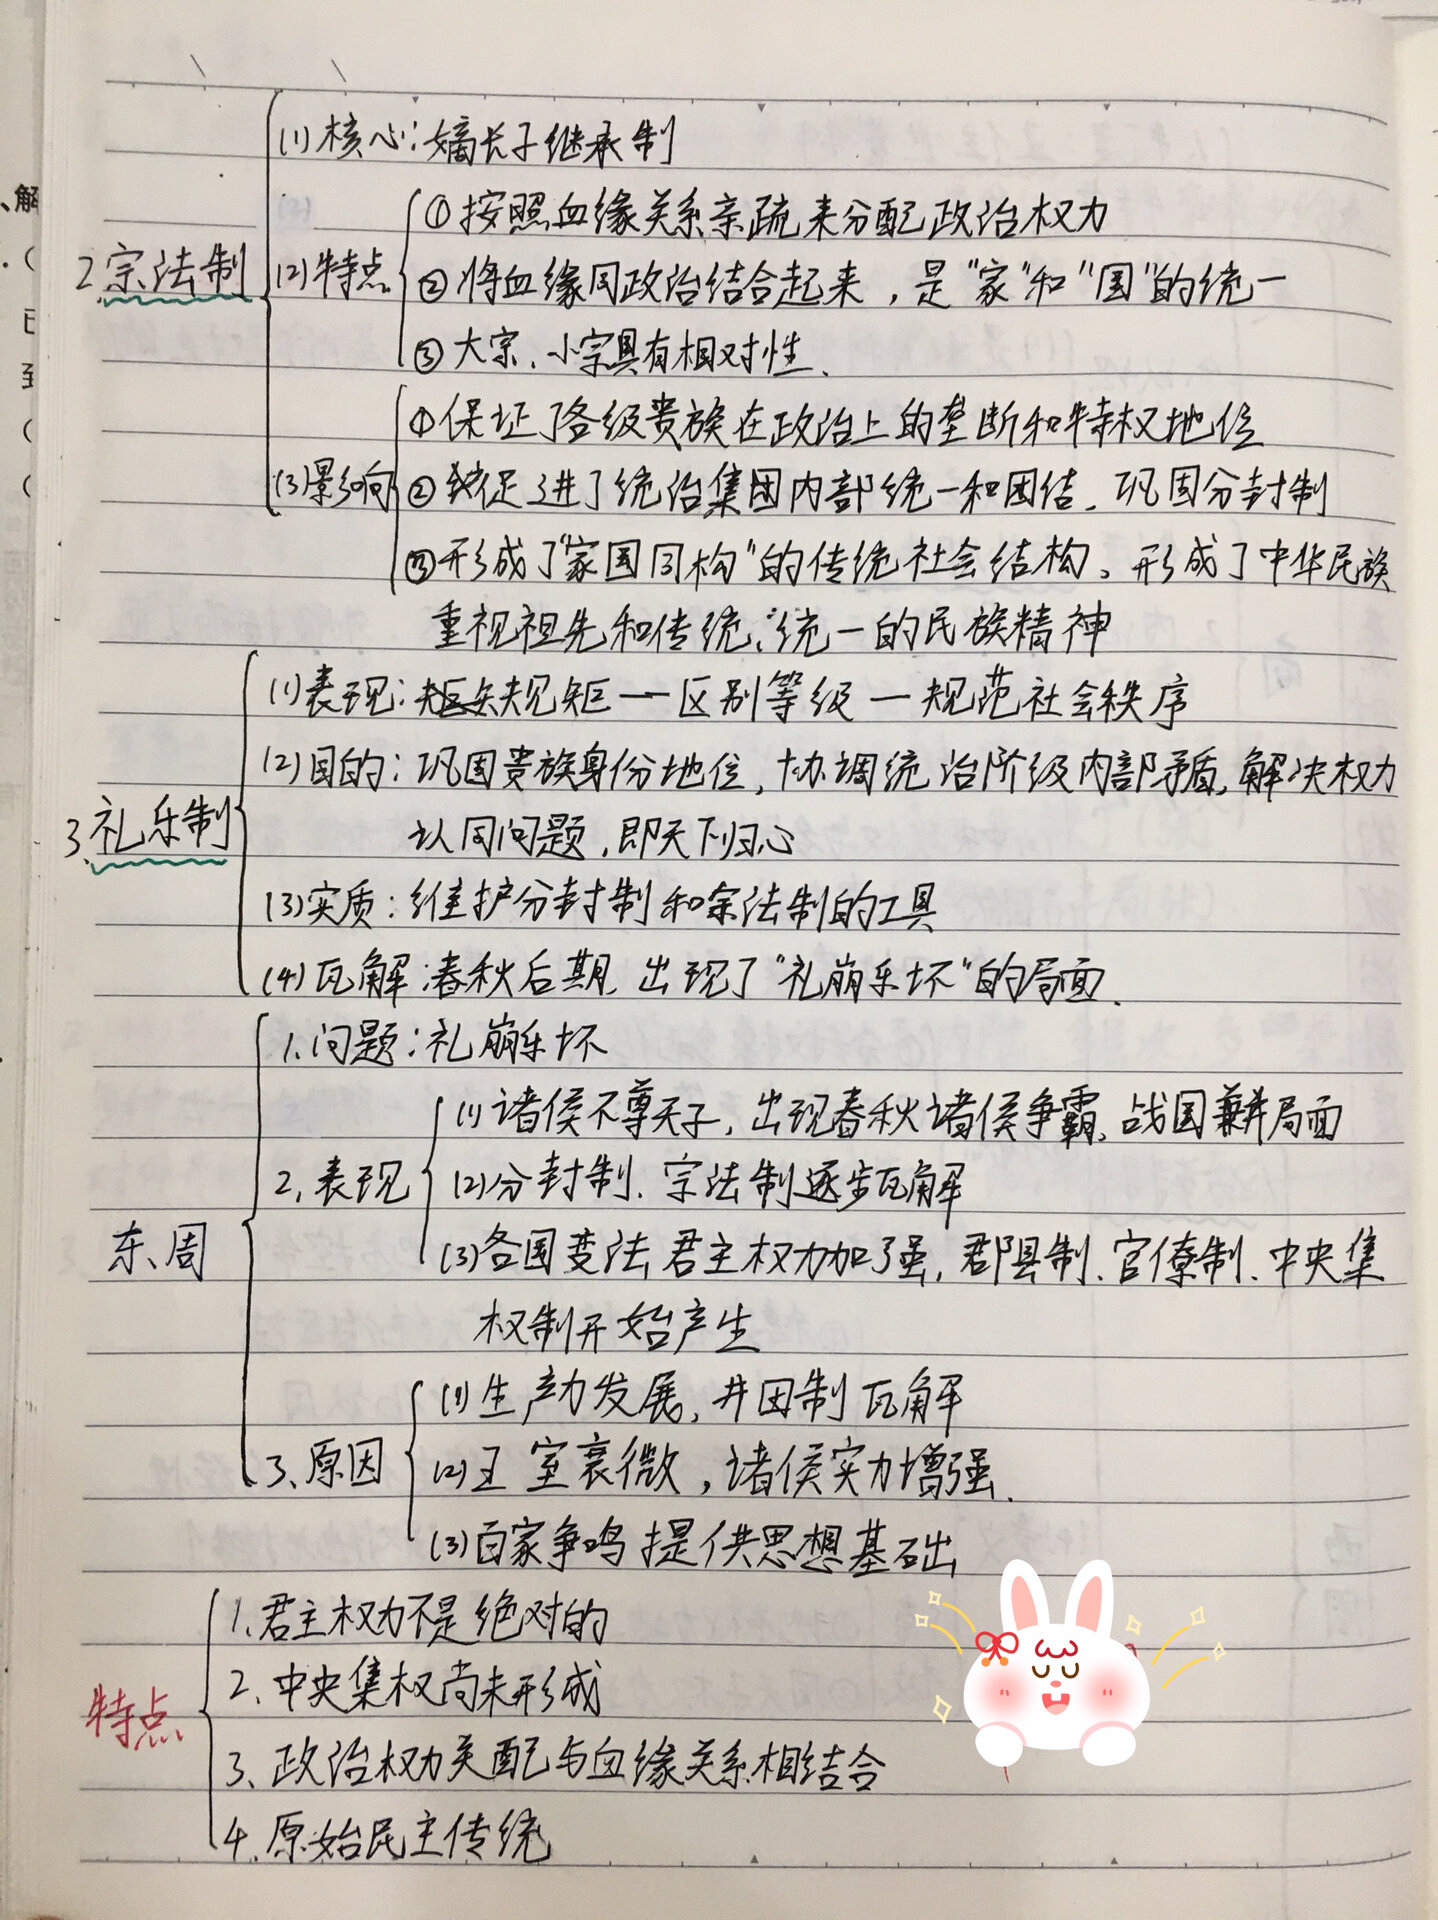 2.宗法制
(1)核心:嫡长子继承制
(2)特点
①按照血缘关系亲疏来分配政治权力
②将血缘同政治结合起来,是"家"和"国"的统一
③大宗、小宗具有相对性、
(3)影响
①保证了各级贵族在政治上的垄断和特权地位
②促进了统治集团内部统一和团结、巩固分封制
③形成了"家国同构"的传统社会结构、形成了中华民族
重视祖先和传统、统一的民族精神
3.礼乐制
(1)表现:规矩—区别等级—规范社会秩序
(2)目的:巩固贵族身份地位,协调统治阶级内部矛盾,解决权力
认同问题,即天下归心
(3)实质:维护分封制和宗法制的工具
(4)瓦解:春秋后期、出现了"礼崩乐坏"的局面、
东周
1、问题:礼崩乐坏
2、表现
(1)诸侯不尊天子,出现春秋诸侯争霸、战国兼并局面
(2)分封制、宗法制逐步瓦解
(3)各国变法,君主权力加强,郡县制、官僚制、中央集
权制开始产生
3、原因
(1)生产力发展,井田制瓦解
(2)王室衰微,诸侯实力增强、
(3)百家争鸣提供思想基础
特点
1、君主权力不是绝对的
2、中央集权尚未形成
3、政治权力分配与血缘关系相结合
4、原始民主传统
、解
(
已
到
(
(